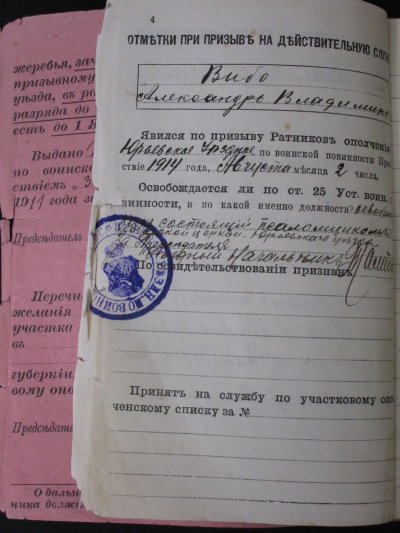 жеребья, зач
призывному
уѣзда, въ ра
разряда до
есть до 1 Я
Выдано
по воинско
ствіемъ „
1911 года за
Предсѣдатель
Перечи
желанія
участка
въ
губерніи,
вому опо
Предсѣдате
О дальн
ника должн
4
ОТМѢТКИ ПРИ ПРИЗЫВѢ НА ДѢЙСТВИТЕЛЬНУЮ СЛУЖ
Вибо
Александръ Владимиро
Явился по призыву Ратниковъ ополченія
Юрьевское Уѣздное по воинской повинности При
ствіе 1914 года, Августа мѣсяца 2 числа.
Освобождается ли по ст. 25 Уст. воин.
винности, и по какой именно должности: освобож
состоящій псаломщикомъ
ской церкви, Юрьевскаго уѣзда
Предсѣдателя
Начальникъ
По освидѣтельствованіи признанъ
Принятъ на службу по участковому опол
ченскому списку за №